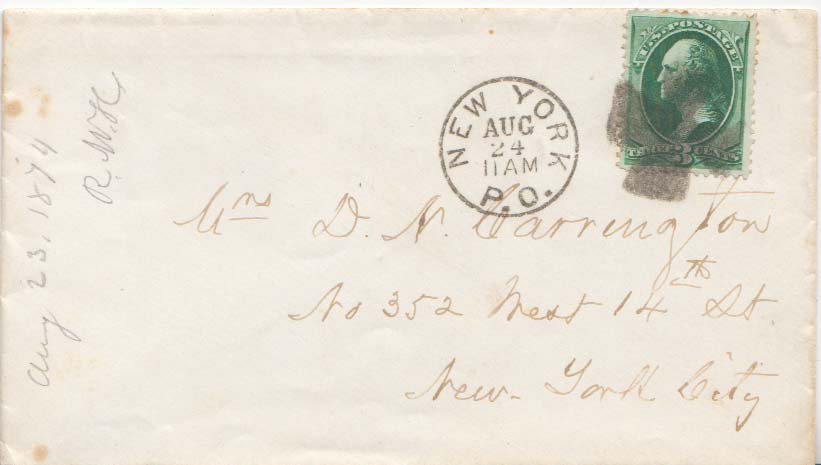 U.S. POSTAGE
THREE 3 CENTS
NEW YORK
AUG
24
11AM
P.O.
Mrs D. N. Carrington
No 352 West 14th St.
New-York City
Aug 23, 1874
R.W.H